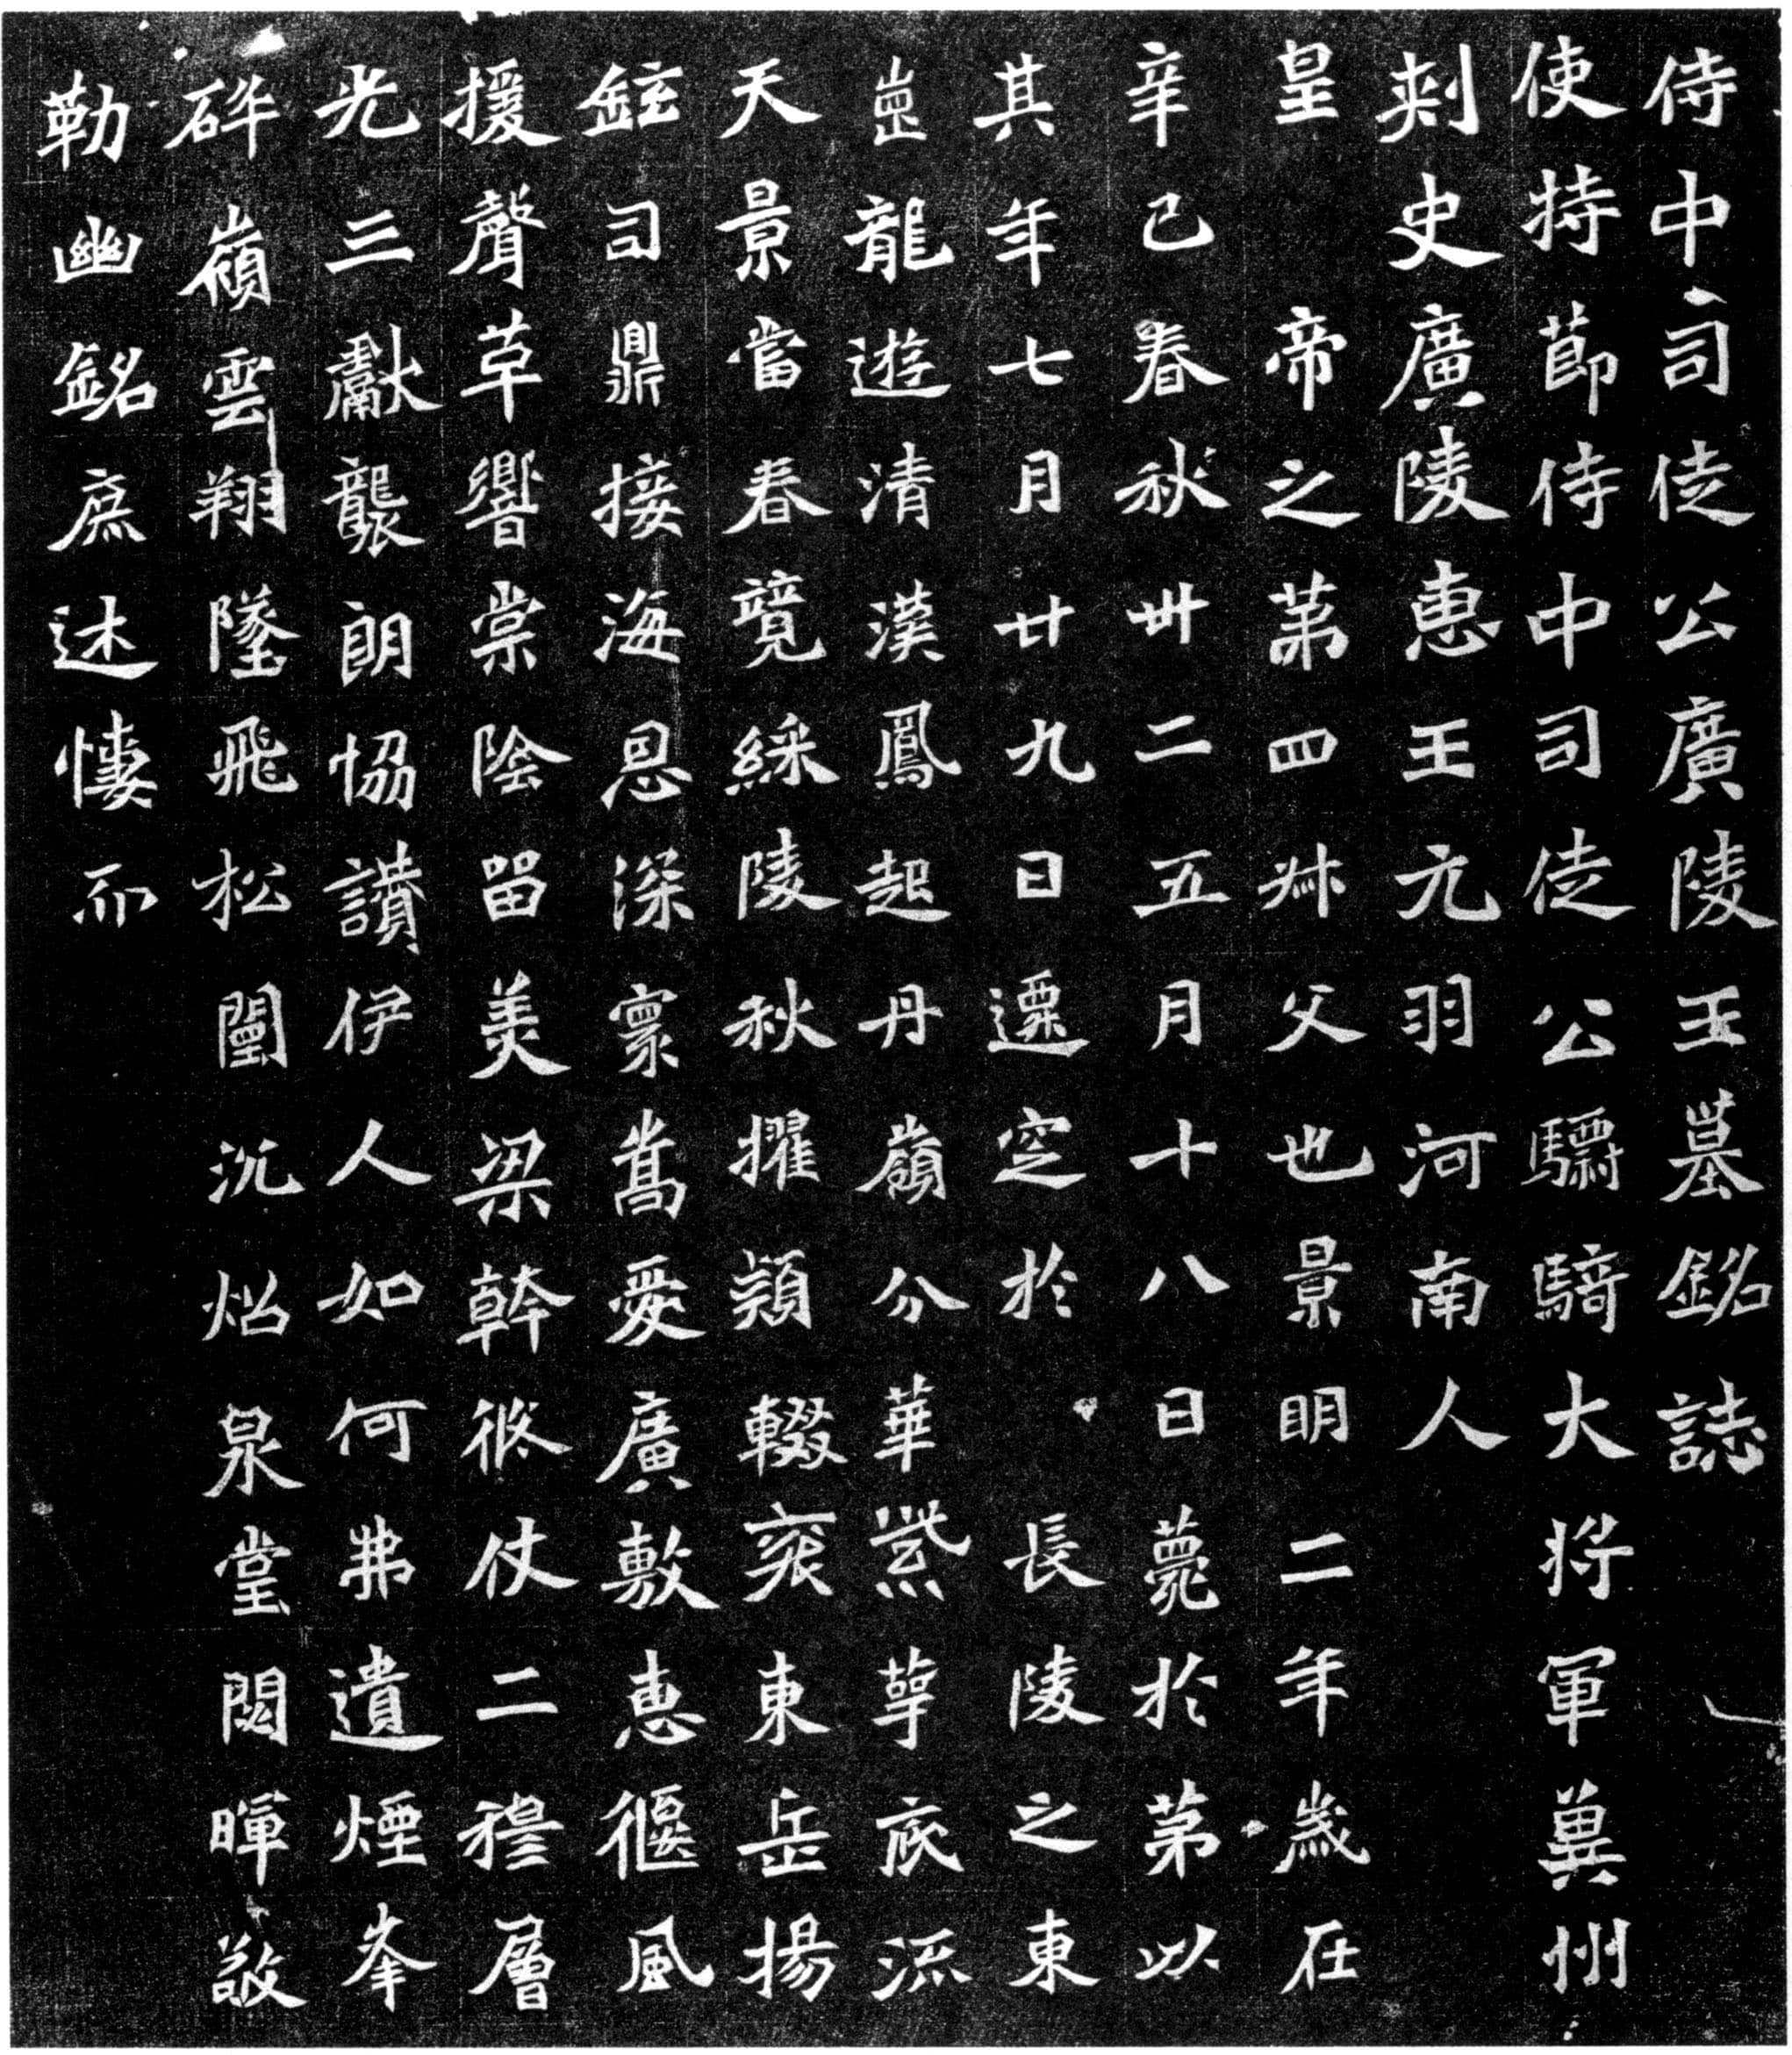 侍中司徒公廣陵王墓銘誌
使持節侍中司徒公驃騎大將軍冀州
刾史廣陵惠王元羽河南人
皇帝之第四叔父也景明二年歲在
辛巳春秋卅二五月十八日薨於第以
其年七月廿九日遷窆於長陵之東
崗龍遊清漢鳳起丹嶺分華紫萼底流
天景當春競綵陵秋擢穎輟袞東岳揚
鉉司鼎接海恩深寰嵩愛廣敷惠偃風
援聲草響棠陰留美梁幹徽仗二穆層
光三獻襲朗協讚伊人如何弗遺煙峯
碎嶺雲翔墜飛松闈沉炤泉堂閟暉敬
勒幽銘庶述悽而